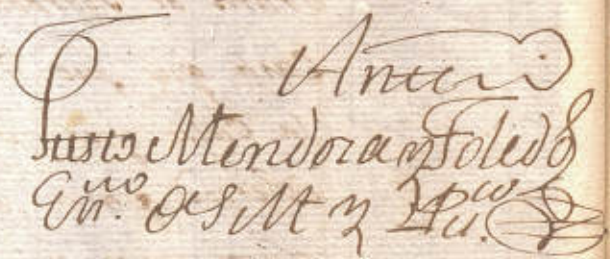 Ante mi
Justo Mendoza y Toledo
Esno. de S M y Ppco.